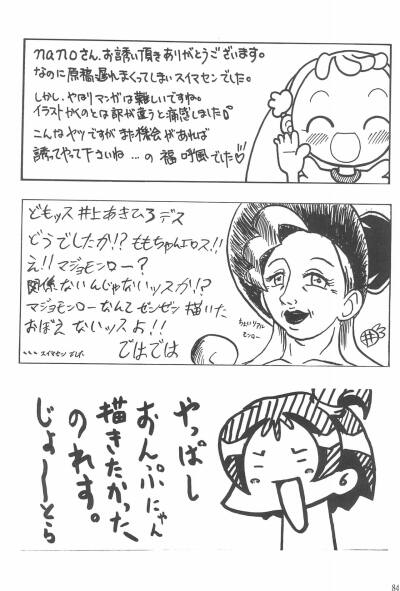 nanoさん、お誘い頂きありがとうございます。
なのに原稿遅れまくってしまいスイマセンでした。
しかし、やはりマンガは難しいですね。
イラストかくのとは訳が違うと痛感しました
こんなヤツですがまた機会があれば
誘ってやって下さいね …の 福 呼風でした♡
どもッス 井上あきひろデス
どうでしたか!? ももちゃんエロス!!
え!! マジョモンロー?
関係ないんじゃないッスか!?
マジョモンローなんてゼンゼン描いた
おぼえ ないッスよ!!
…スイマセン でした
ではでは
ちょいリアル
モンロー
やっぱし
おんぷにゃん
描きたかった、
のれす。
じょーとら
84